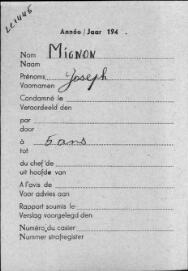 Année/Jaar 194 .
Nom MIGNON
Naam
Prénoms Joseph
Voornamen
Condamné le
Veroordeeld den
par
door
à 5 ans
tot
du chef de
uit hoofde van
A l'avis de
Voor advies aan
Rapport soumis le
Verslag voorgelegd den
Numéro du casier
Nummer strafregister